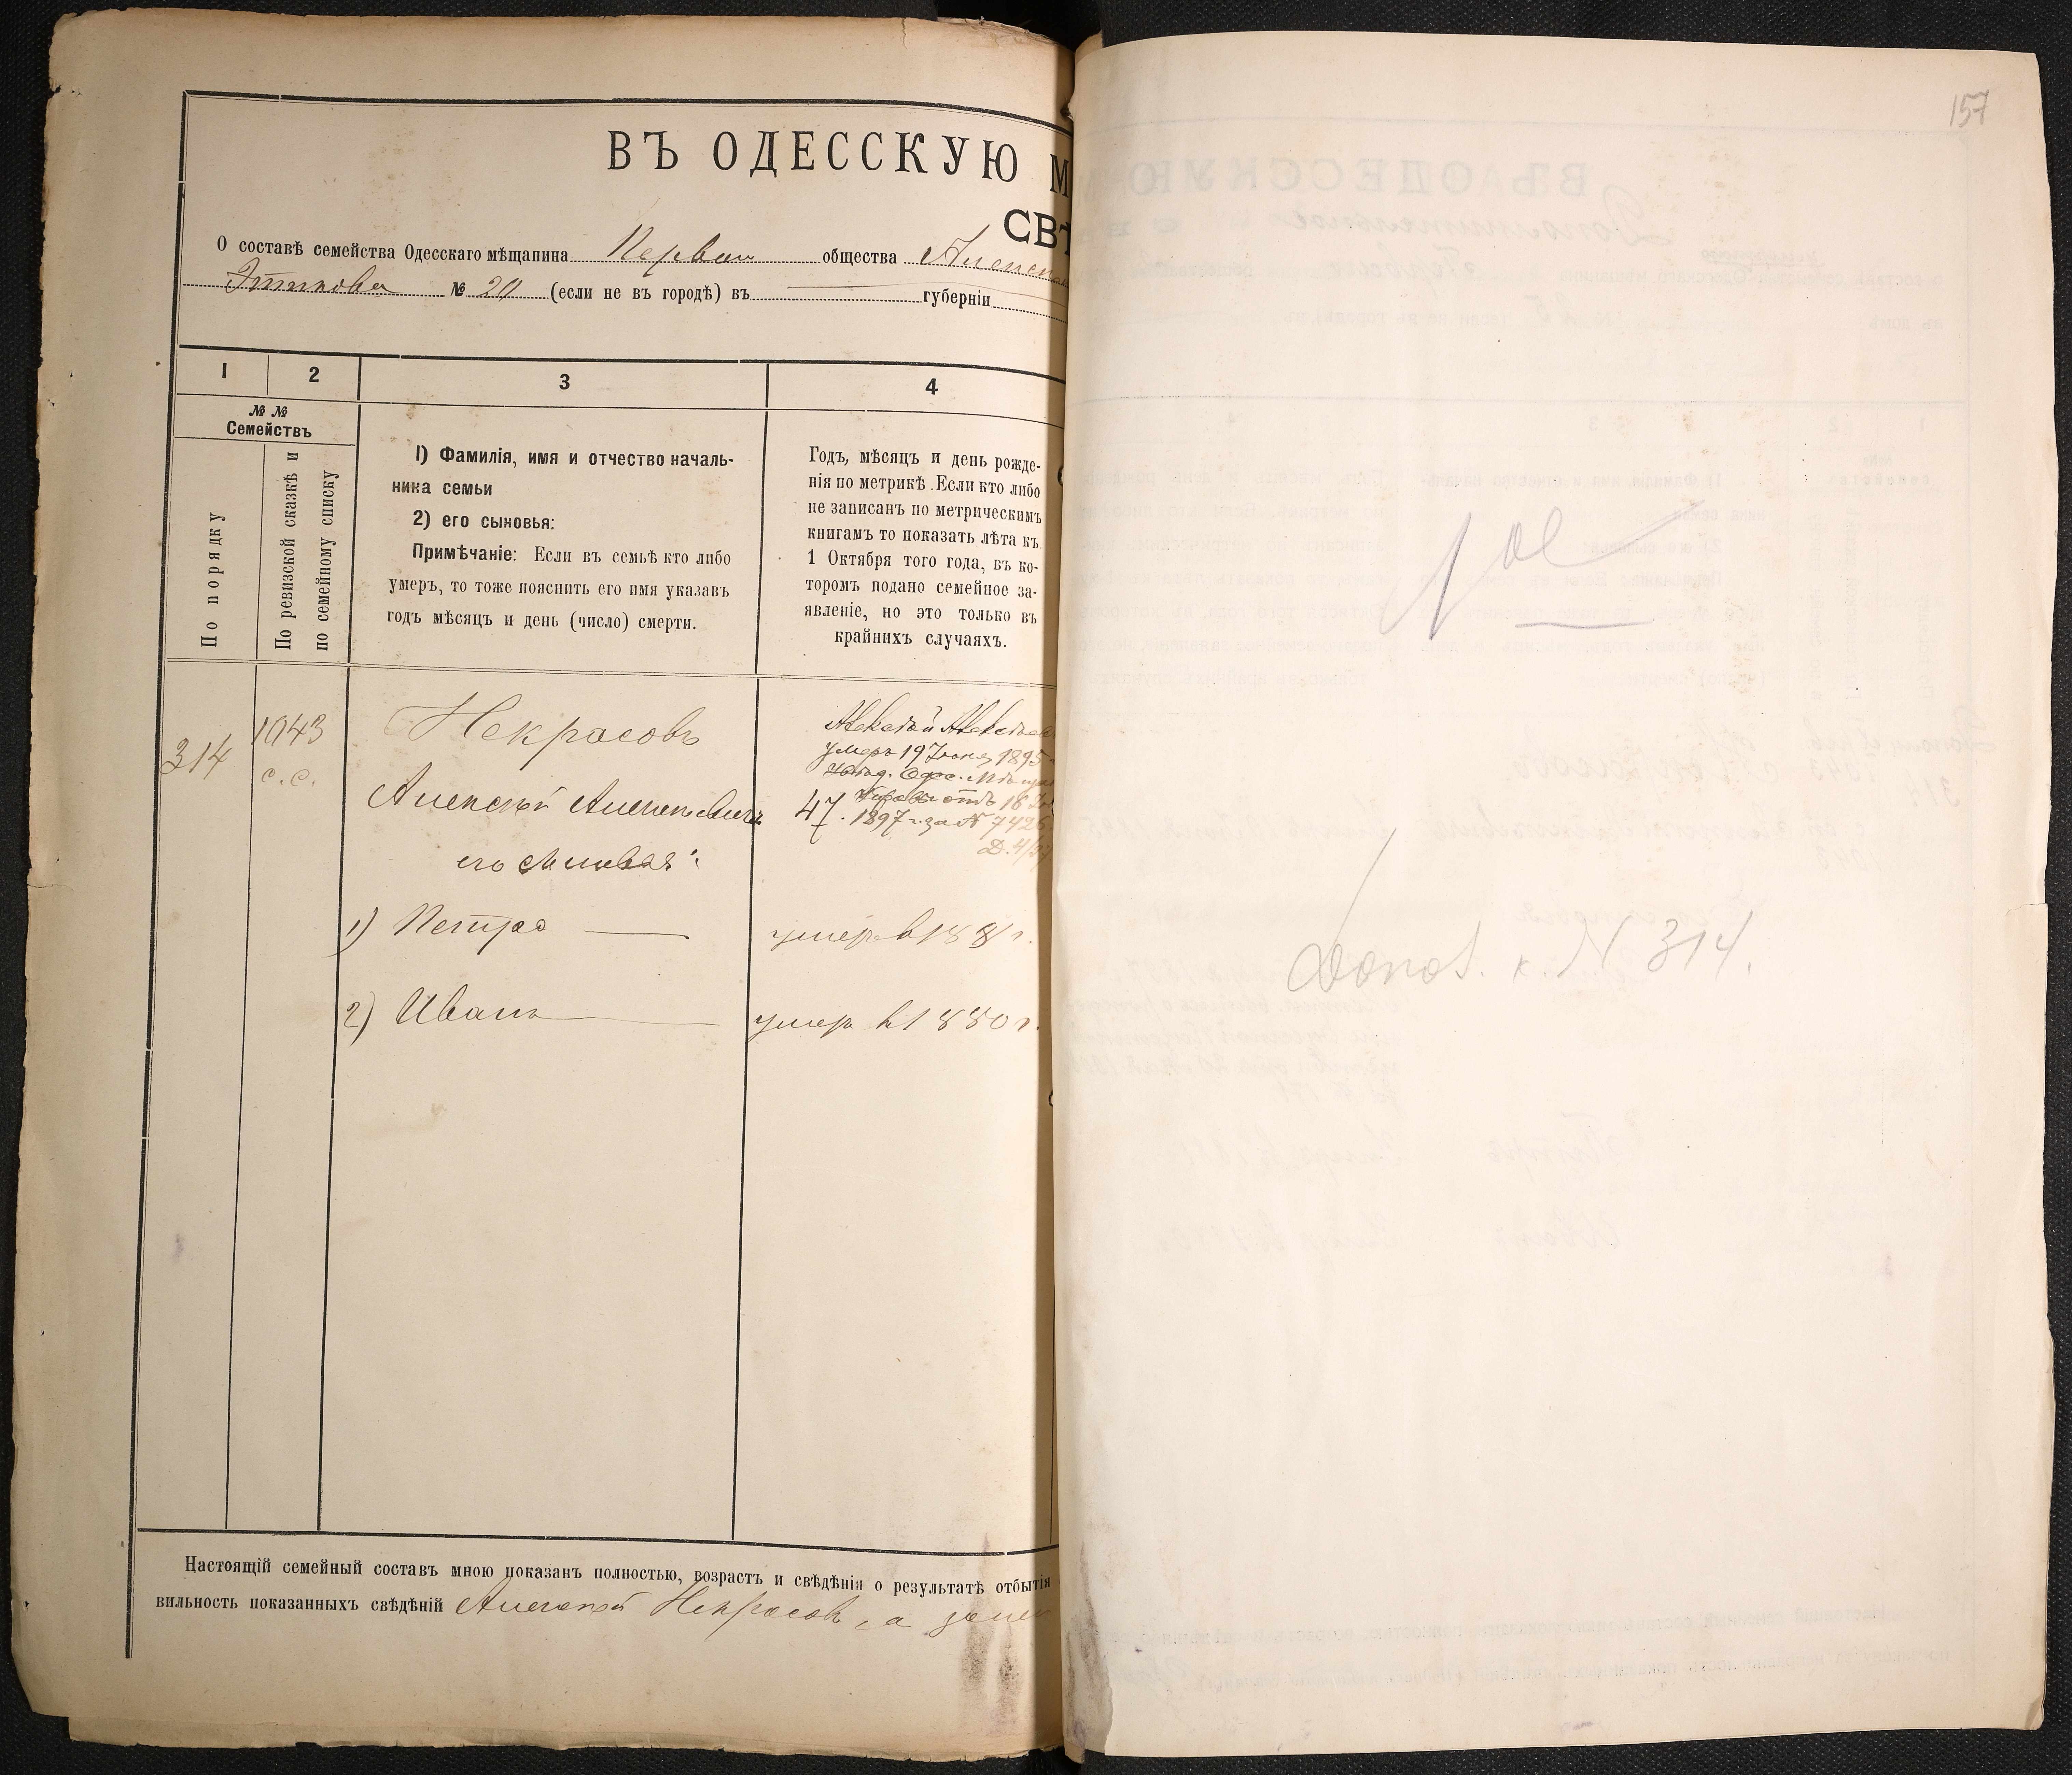 ВЪ ОДЕССКУЮ М
СВѢ
О составѣ семейства Одесскаго мѣщанина Первай общества Алексѣ
№ 20 (если не въ городѣ) въ губерніи
1 2 3 4
№ № Семействъ
По порядку
По ревизской сказкѣ и по семейному списку
1) Фамилія, имя и отчество началь-
ника семьи
2) его сыновья:
Примѣчаніе: Если въ семьѣ кто либо
умеръ, то тоже пояснить его имя указавъ
годъ мѣсяцъ и день (число) смерти.
Годъ, мѣсяцъ и день рожде-
нія по метрикѣ. Если кто либо
не записанъ по метрическимъ
книгамъ то показать лѣта къ
1 Октября того года, въ ко-
торомъ подано семейное за-
явленіе, но это только въ
крайнихъ случаяхъ.
314
1043
с. с.
Некрасовъ
Алексѣй Алексѣевичъ
его сыновья:
1) Петръ
2) Иванъ
Алексѣй Алексѣев
умеръ 19 Іюня 1895
Одес. Мѣщан
47. Управы отъ 18
1897 г. за № 7426
умеръ в 1881 г.
умеръ в 1880 г.
Настоящій семейный составъ мною показанъ полностью, возрастъ и свѣдѣнія о результатѣ отбытія
вильность показанныхъ свѣдѣній Алексѣй Некрасовъ, а
157
Допол. к. № 314.